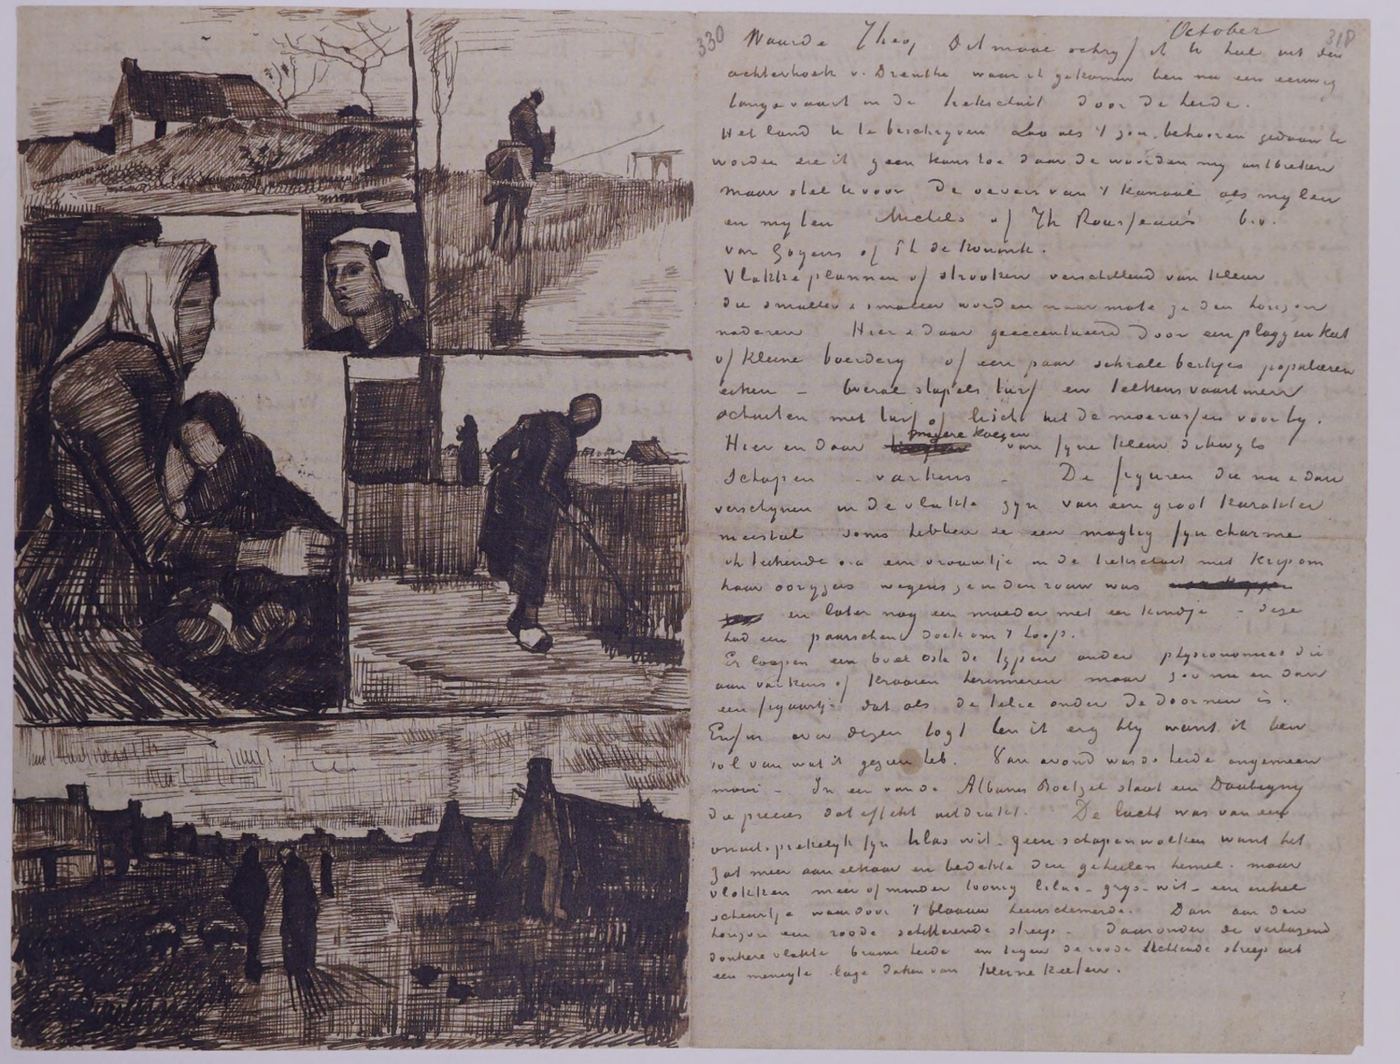 330
October
318
Waarde Theo, Dit maal schryf ik U heel uit den
achterhoek v. Drenthe waar ik gekomen ben na een eeuwig
lange vaart in de trekschuit door de heide.
Het land U te beschryven zoo als 't zou behooren gedaan te
worden zie ik geen kans toe daar de woorden my ontbreken
maar stel U voor de oevers van 't kanaal als mylen
en mylen Michels of Th Rousseau's b.v.
van Goyens of Ph. de Koninck.
Vlakke plannen of strooken verschillend van kleur
die smaller & smaller worden naarmate ze den horizon
naderen Hier & daar geaccentueerd door een plaggen keet
of kleine boerdery of een paar schrale berkjes populieren
eiken – overal stapels turf en telkens vaart men
schuiten met turf of lisch uit de moerassen voorby.
Hier en daar magere koeien van fyne kleur dikwyls
schapen – varkens – De figuren die nu & dan
verschynen in de vlakte zyn van een groot karakter
meestal soms hebben ze een magtig fyn charme
ik teekende o.a een vrouwtje in de trekschuit met krip om
haar oorijzers wegens ze in den rouw was
en later nog een moeder met een kindje – deze
had een paarschen doek om 't hoofd.
Er loopen een boel Ostade typen onder physionomies die
aan varkens of kraaien herinneren maar zoo nu en dan
een figuurtje dat als de lelie onder de doornen is.
Enfin over dezen togt ben ik erg bly want ik ben
vol van wat ik gezien heb. Van avond was de heide ongemeen
mooi – In een van de Albums Boetzel staat een Daubigny
die precies dat effekt uitdrukt. De lucht was van een
onuitsprekelyk fyn lilas wit – geen schapenwolken want het
zat meer aan elkaar en bedekte den geheelen hemel – maar
vlokken meer of minder toonig lilas – grys – wit – een enkel
scheurtje waardoor 't blaauw heenschemerde. Dan aan den
horizon een roode schitterende streep – daaronder de verbazend
donkere vlakte bruine heide en tegen de roode lichtende streep uit
een menigte lage daken van kleine keeten.